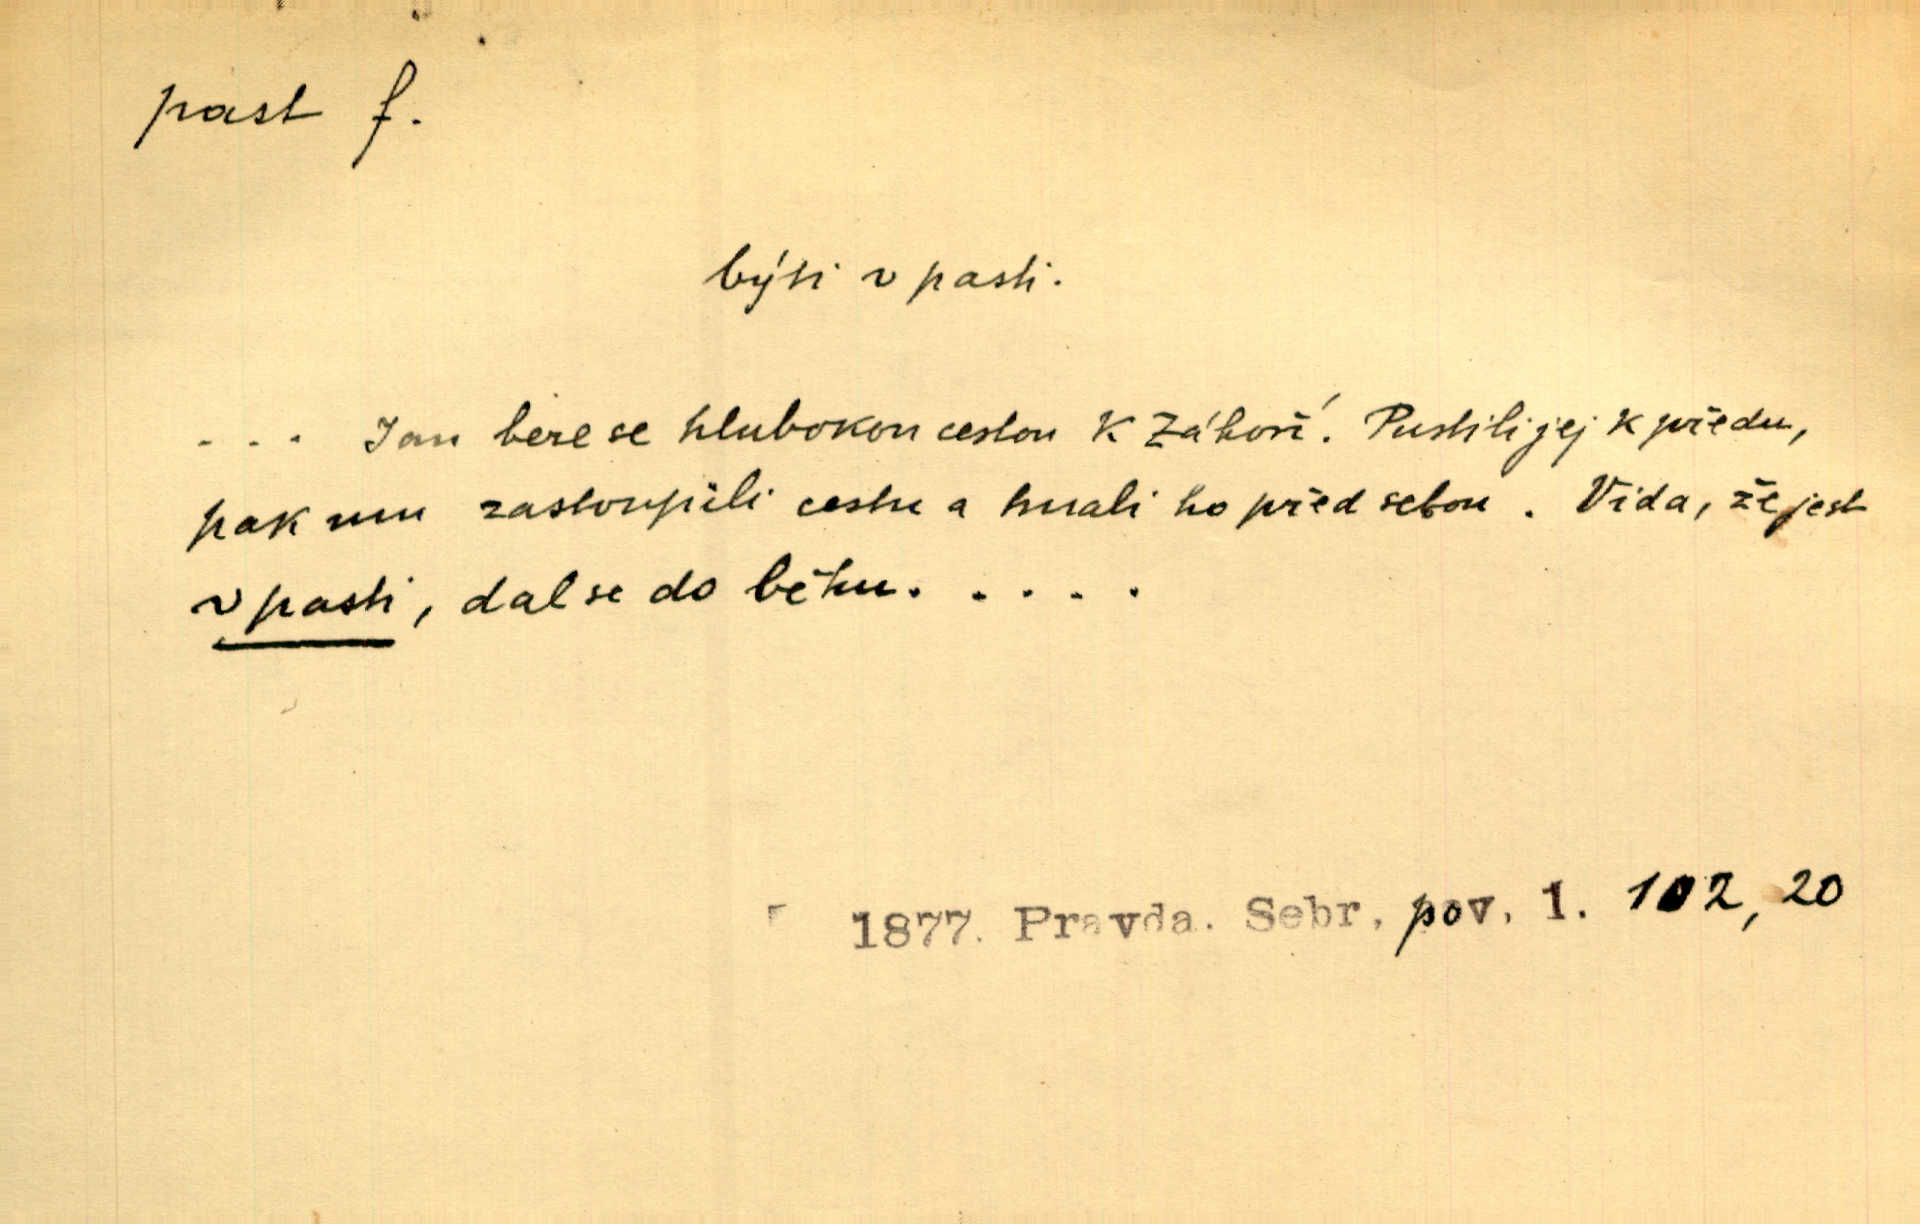 past f.
býti v pasti.
. . . Jan béře se hlubokou cestou k Záhoří. Pustili jej k předu,
pak mu zastoupili cestu a hnali ho před sebou. Vida, že jest
v pasti, dal se do běhu. . . . .
1877. Pravda. Sebr. pov. 1. 102, 20